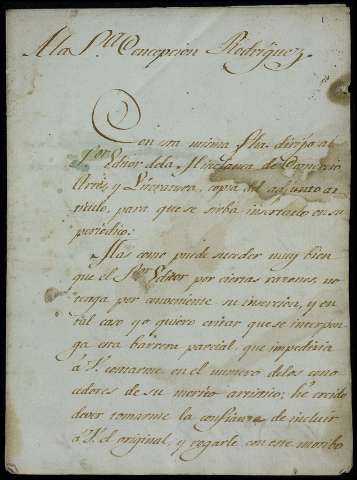 A la S.ra Concepcion Rodriguez.
Con esta misma fha. dirijo al
S.or Editor dela Miscelanea de Comercio
Artes, y Literatura, copia del adjunto ar
ticulo, para que se sirba insertarlo en su
periodico:
Mas como puede suceder muy bien
que el S.or Editor por ciertas razones, no
tenga por conveniente su insercion, y en
tal caso yo quiero evitar que se interpon
ga esta barrera parcial, que impediria
à V. contarme en el numero delos cono
cedores de su merito artistico; he creido
dever tomarme la confianza de incluir
à V. el original, y rogarle con este motibo